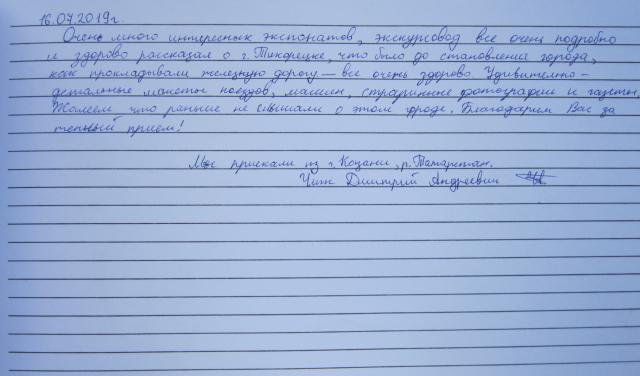 16.07.2019г.
Очень много интересных экспонатов, экскурсовод все очень подробно
и здорово рассказал о г. Тихорецке, что было до становления города,
как прокладывали железную дорогу — все очень здорово. Удивительно-
детальные макеты поездов, машин, старинные фотографии и газеты.
Жалеем что раньше не слышали о этом городе. Благодарим Вас за
теплый прием!
Мы приехали из г. Казани, р. Татарстан.
Чиж Дмитрий Андреевич